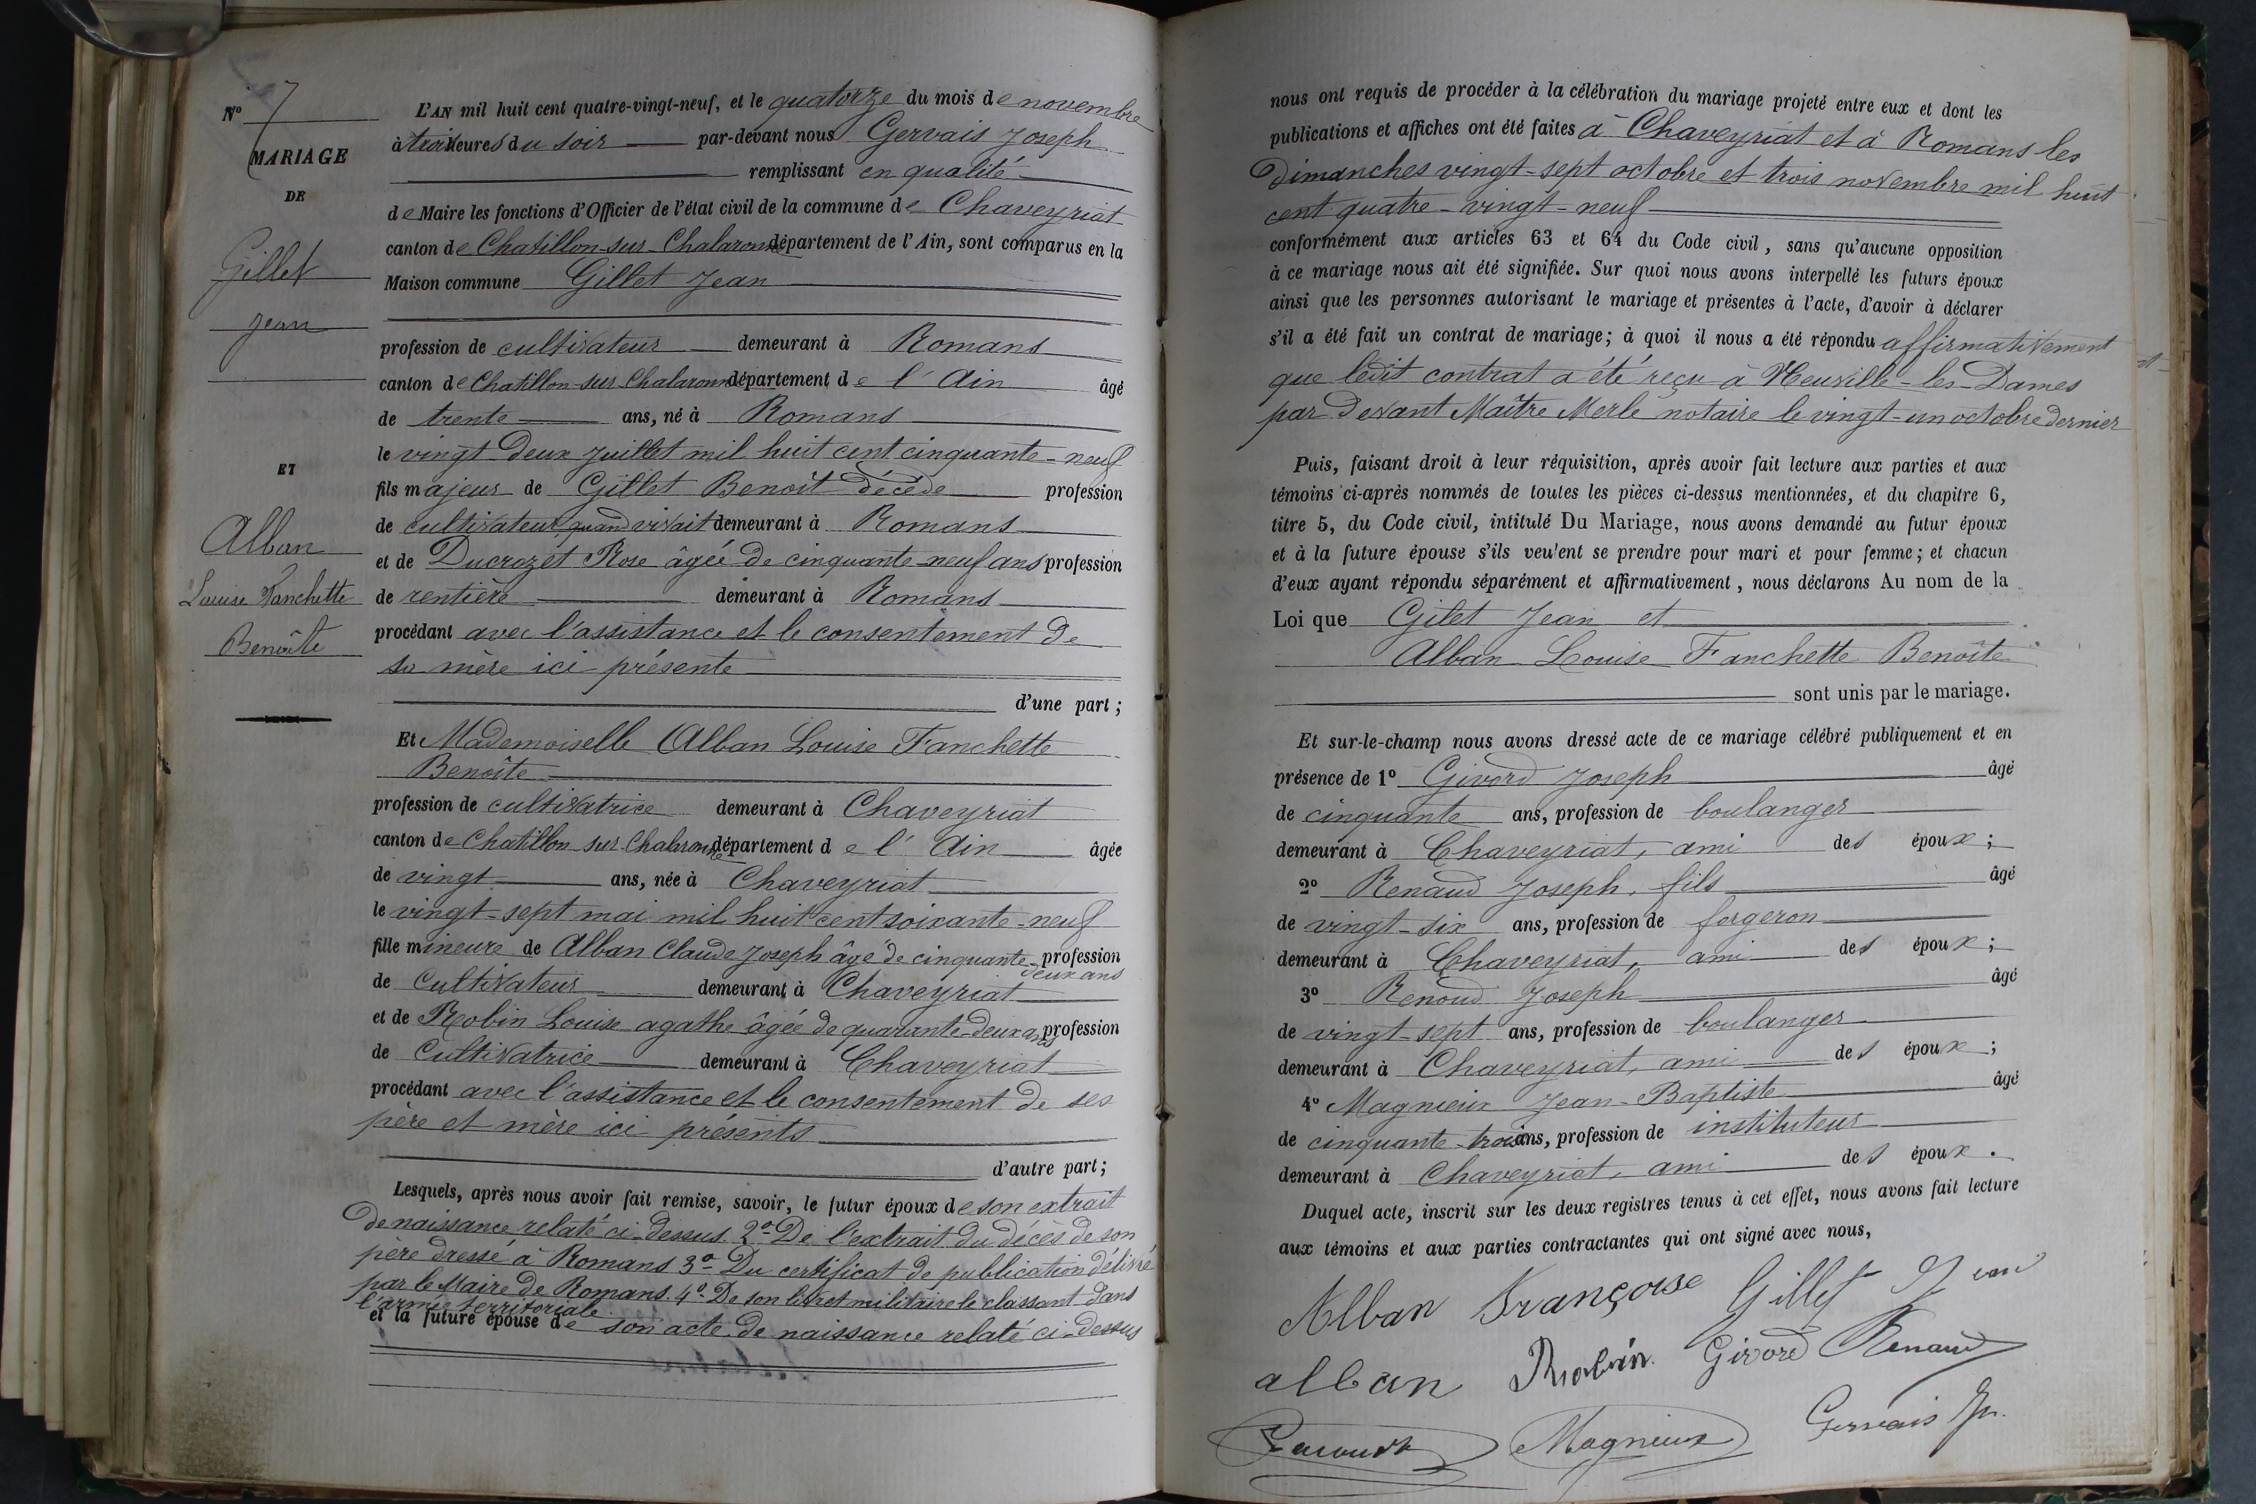 N° 7
MARIAGE
DE
Gillet
Jean
ET
Alban
Louise Fanchette
Benoîte
L'AN mil huit cent quatre-vingt-neuf, et le quatorze du mois de novembre
à trois heures du soir par-devant nous Gervais Joseph
remplissant en qualité
de Maire les fonctions d'Officier de l'état civil de la commune de Chaveyriat
canton de Chatillon-sur-Chalaronne département de l'Ain, sont comparus en la
Maison commune Gillet Jean
profession de cultivateur demeurant à Romans
canton de Chatillon-sur-Chalaronne département de l'Ain âgé
de trente ans, né à Romans
le vingt-deux juillet mil huit cent cinquante-neuf
fils majeur de Gillet Benoît décédé profession
de cultivateur quand vivait demeurant à Romans
et de Ducrozet Rose âgée de cinquante-neuf ans profession
de rentière demeurant à Romans
procédant avec l'assistance et le consentement de
sa mère ici présente
d'une part;
Et Mademoiselle Alban Louise Fanchette
Benoîte
profession de cultivatrice demeurant à Chaveyriat
canton de Chatillon-sur-Chalaronne département de l'Ain âgée
de vingt ans, née à Chaveyriat
le vingt-sept mai mil huit cent soixante-neuf
fille mineure de Alban Claude Joseph âgé de cinquante- profession
deux ans
de cultivateur demeurant à Chaveyriat
et de Robin Louise agathe âgée de quarante-deux ans profession
de Cultivatrice demeurant à Chaveyriat
procédant avec l'assistance et le consentement de ses
père et mère ici présents
d'autre part;
Lesquels, après nous avoir fait remise, savoir, le futur époux de son extrait
de naissance relaté ci-dessus 2° De l'extrait du décès de son
père dressé à Romans 3° Du certificat de publication délivré
par le Maire de Romans. 4° De son livret militaire le classant dans
l'armée territoriale.
et la future épouse de son acte de naissance relaté ci-dessus
nous ont requis de procéder à la célébration du mariage projeté entre eux et dont les
publications et affiches ont été faites à Chaveyriat et à Romans les
dimanches vingt-sept octobre et trois novembre mil huit
cent quatre-vingt-neuf
conformément aux articles 63 et 64 du Code civil, sans qu'aucune opposition
à ce mariage nous ait été signifiée. Sur quoi nous avons interpellé les futurs époux
ainsi que les personnes autorisant le mariage et présentes à l'acte, d'avoir à déclarer
s'il a été fait un contrat de mariage; à quoi il nous a été répondu affirmativement et
que ledit contrat a été reçu à Neuville-les-Dames
par devant Maître Merle notaire le vingt-un octobre dernier
Puis, faisant droit à leur réquisition, après avoir fait lecture aux parties et aux
témoins ci-après nommés de toutes les pièces ci-dessus mentionnées, et du chapitre 6,
titre 5, du Code civil, intitulé Du Mariage, nous avons demandé au futur époux
et à la future épouse s'ils veulent se prendre pour mari et pour femme; et chacun
d'eux ayant répondu séparément et affirmativement, nous déclarons Au nom de la
Loi que Gilet Jean et
Alban Louise Fanchette Benoîte
sont unis par le mariage.
Et sur-le-champ nous avons dressé acte de ce mariage célébré publiquement et en
présence de 1° Givord Joseph âgé
de cinquante ans, profession de boulanger
demeurant à Chaveyriat, ami des époux;
2° Renaud Joseph, fils âgé
de vingt-six ans, profession de forgeron
demeurant à Chaveyriat, ami des époux;
3° Renoud Joseph âgé
de vingt-sept ans, profession de boulanger
demeurant à Chaveyriat, ami des époux;
4° Magnieux Jean-Baptiste âgé
de cinquante-trois ans, profession de instituteur
demeurant à Chaveyriat, ami des époux.
Duquel acte, inscrit sur les deux registres tenus à cet effet, nous avons fait lecture
aux témoins et aux parties contractantes qui ont signé avec nous,
Alban Françoise Gillet Jean
alban Robin Givord Renaud
Magnieux Gervais